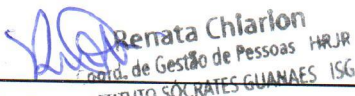 Renata Chiarion
Coord. de Gestão de Pessoas HRJR
INSTITUTO SÓCRATES GUANAES ISG